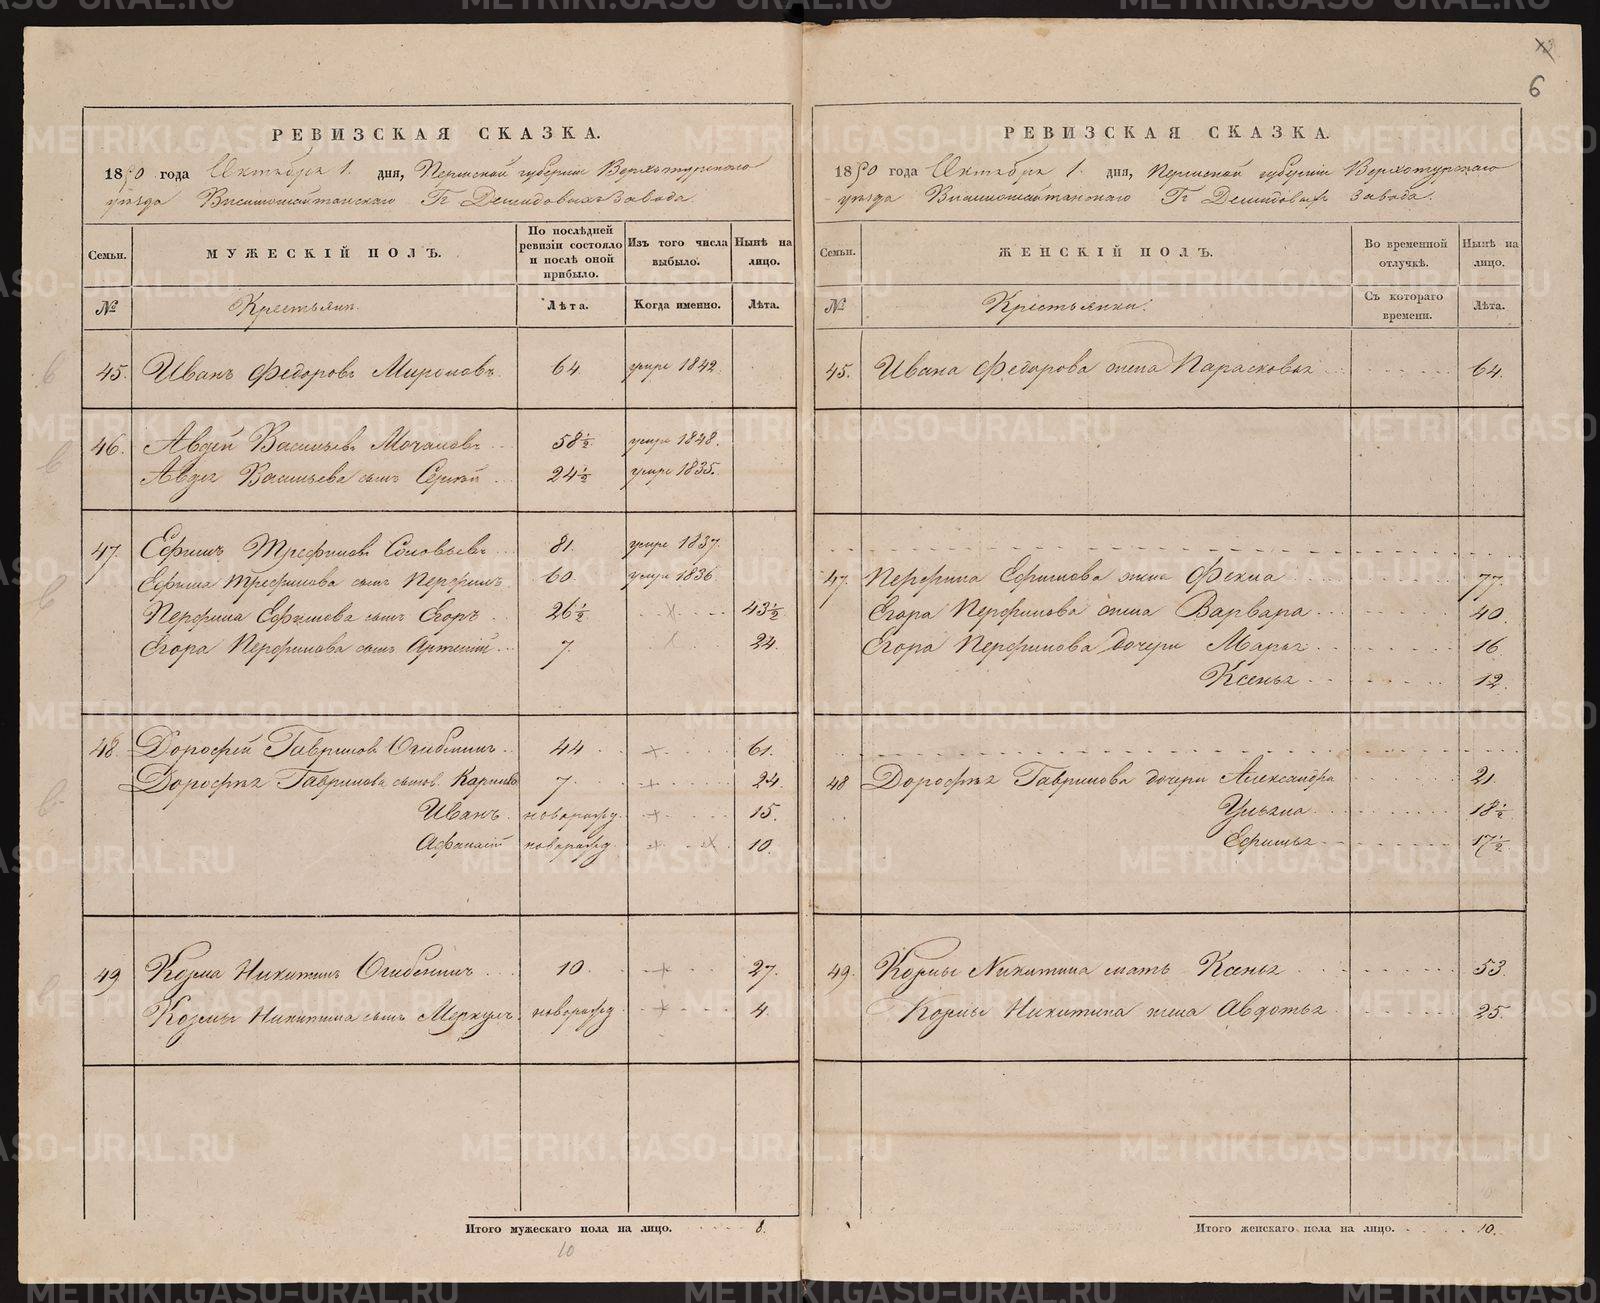 6
РЕВИЗСКАЯ СКАЗКА.
1850 года Октября 1. дня, Пермской губернии Верхотурскаго
уѣзда Висимошайтанскаго Гг Демидовыхъ завода.
Семьи. МУЖЕСКІЙ ПОЛЪ. По послѣдней ревизіи состояло и послѣ оной прибыло. Изъ того числа выбыло. Нынѣ на лицо.
№ Крестьяне. Лѣта. Когда именно. Лѣта.
45. Иванъ Федоровъ Мироновъ 64 умре 1842.
46. Авдей Васильевъ Мочаловъ 58½ умре 1848.
Авдея Васильева сынъ Сергѣй 24½ умре 1835.
47. Ефимъ Трефиловъ Соловьевъ 81. умре 1837.
Ефима Трефилова сынъ Перфилъ 60. умре 1836.
Перфила Ефимова сынъ Егоръ 26½ 43½
Егора Перфилова сынъ Артемій 7. 24.
48. Дорофей Гавриловъ Огибенинъ 44 61.
Дорофея Гаврилова сынов. 7. 24.
Иванъ. новорожд. 15.
Афанасій новорожд. 10.
49 Козма Никитинъ Огибенинъ 10. 27.
Козмы Никитина сынъ Меркулъ. новорожд 4.
Итого мужескаго пола на лицо. 8.
10
РЕВИЗСКАЯ СКАЗКА.
1850 года Октября 1. дня, Пермской губерніи Верхотурскаго
уѣзда Висимошайтанскаго Гг Демидовыхъ завода.
Семьи. ЖЕНСКІЙ ПОЛЪ. Во временной отлучкѣ. Нынѣ на лицо.
№ Крестьянки. Съ котораго времени. Лѣта.
45. Ивана Федорова жена Парасковья 64.
47. Перфила Ефимова жена Фекла 77.
Егора Перфилова жена Варвара 40.
Егора Перфилова дочери Марья 16
Ксенья 12.
48 Дорофея Гаврилова дочери Александра 21.
Ульяна 18½
Ефимья 17½
49. Козмы Никитина мать Ксенья 53.
Козмы Никитина жена Авдотья 25.
Итого женскаго пола на лицо. 10.
METRIKI.GASO-URAL.RU